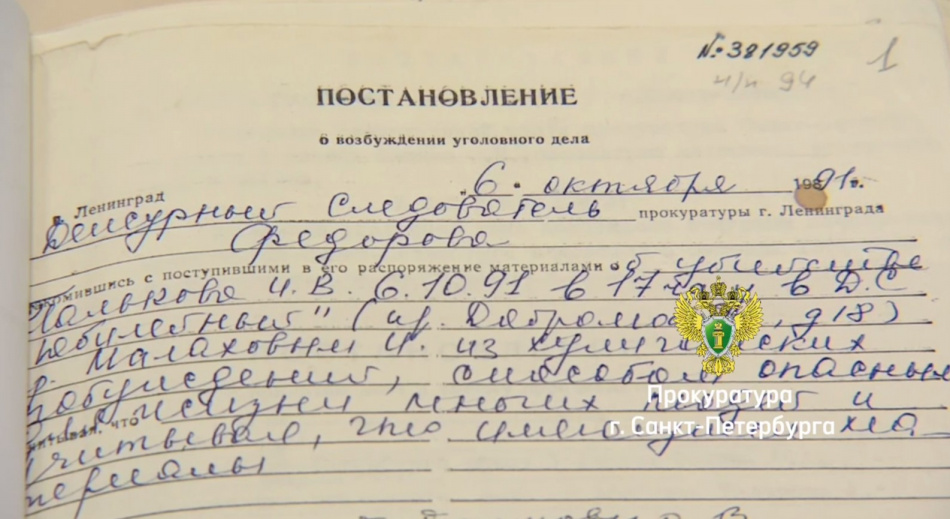 № 381959
1
н/н 94
ПОСТАНОВЛЕНИЕ
о возбуждении уголовного дела
г. Ленинград „6“ октября 1991г.
Дежурный следователь прокуратуры г. Ленинграда
Федорова
ознакомившись с поступившими в его распоряжение материалами об убийстве
Талькова И.В. 6.10.91 в 17 в ДС
Юбилейный" (пр. Добролюбова, д 18)
Малаховым И. из хулиганских
побуждений, способом опасным
для жизни многих людей и
учитывая, что
учитывая, что имеющиеся ма
териалы
Прокуратура
г. Санкт-Петербурга